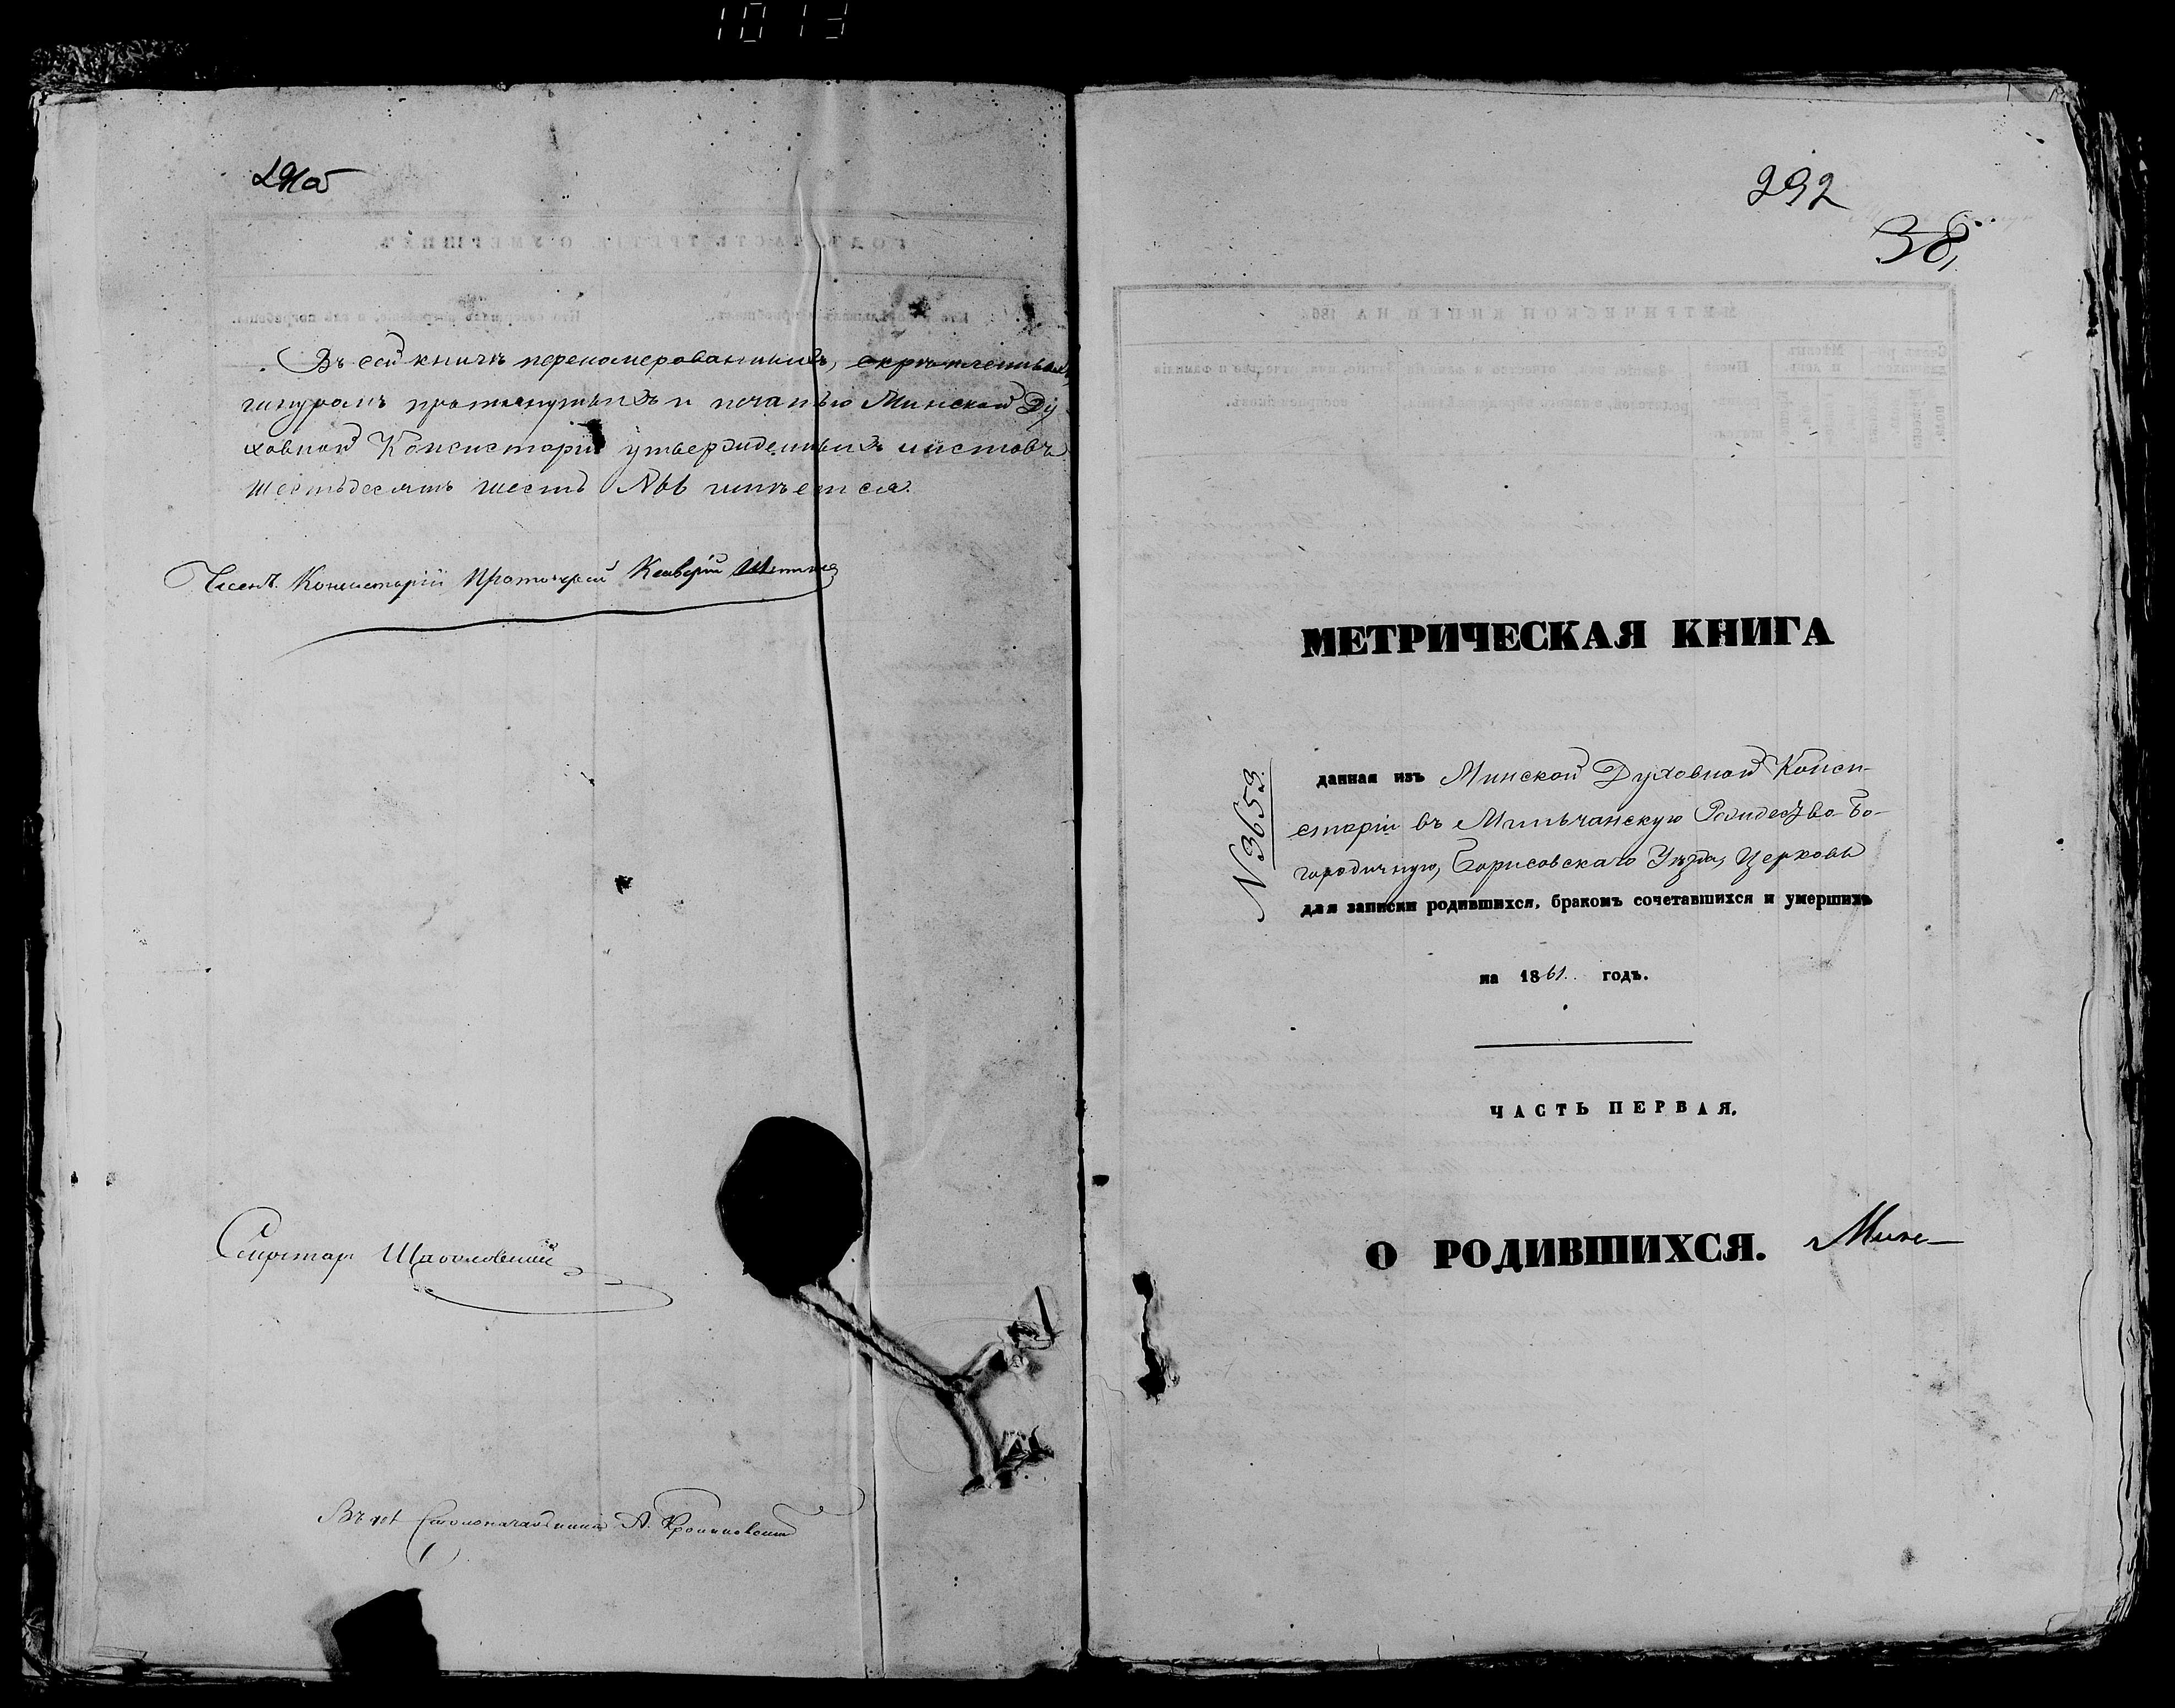 291об
Въ сей книгѣ переномерованныхъ, скрѣпленныхъ,
шнуромъ протянутыхъ и печатью Минской Ду
ховной Консисторіи утвержденныхъ листовъ
шестьдесятъ шесть №66 имѣется.
Членъ Консисторіи Протоіерей
Секретарь
Столоначальника А.
292
38,
МЕТРИЧЕСКАЯ КНИГА
N 3653
данная изъ Минской Духовной Конси-
сторіи въ Мильчанскую Рождество-Бо-
городичную, Борисовскаго Уѣзда, Церковь
для записки родившихся, бракомъ сочетавшихся и умершихъ
на 1861. годъ.
ЧАСТЬ ПЕРВАЯ.
О РОДИВШИХСЯ.